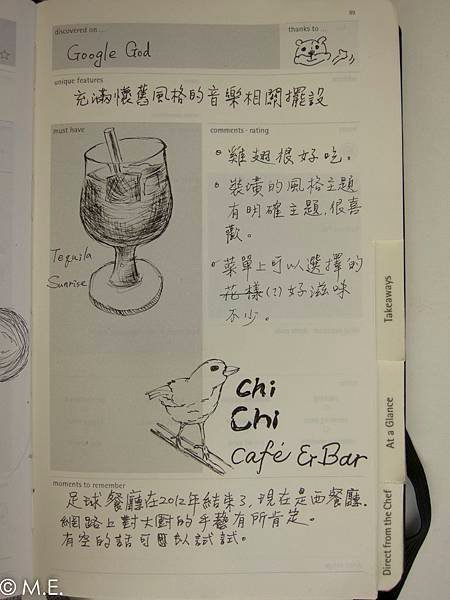 89
discovered on ...
thanks to ...
Google God
unique features
充滿懷舊風格的音樂相關擺設
must have
comments · rating
雞翅很好吃。
裝潢的風格主題
有明確主題,很喜
歡。
菜單上可以選擇的
花樣(?)好滋味
不少。
Tequila
Sunrise
Takeaways
At a Glance
Direct from the Chef
chi
Chi
Café & Bar
moments to remember
足球餐廳在2012年結束了,現在是西餐廳.
網路上對大廚的手藝有所肯定。
有空的話可以試試。
© M.E.